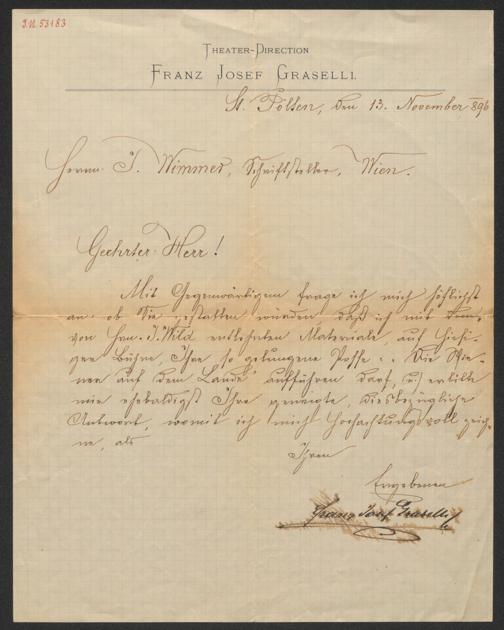 I.N. 53183
THEATER-DIRECTION
FRANZ JOSEF GRASELLI.
St. Pölten, den 13. November 896
Herrn J. Wimmer, Schriftsteller, Wien.
Geehrter Herr!
Mit Gegenwärtigem frage ich mich höflichst
an ob Sie gestatten würden daß ich mit
von Hrn. J. Wild entlehnten Materiale, auf hiesi-
ger Bühne, Ihre so gelungene Posse: „Die Wie-
ner auf dem Lande" aufführen darf, u. erbitte
mir ehebaldigst Ihre geneigte, diesbezügliche
Antwort, womit ich mich hochachtungsvoll zeich-
ne, als
Ihren
Ergebenen
Franz Josef Graselli